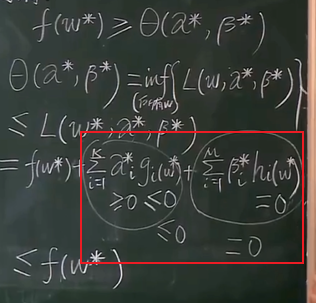 f(w*) ≥ Θ(α*, β*)
Θ(α*, β*) = inf{L(w, α*, β*)}
≤ L(w*, α*, β*)
= f(w*) + Σ_{i=1}^{K} α*_i g_i(w*) + Σ_{i=1}^{M} β*_i h_i(w*)
≥0 ≤0 =0
≤0 =0
≤ f(w*)